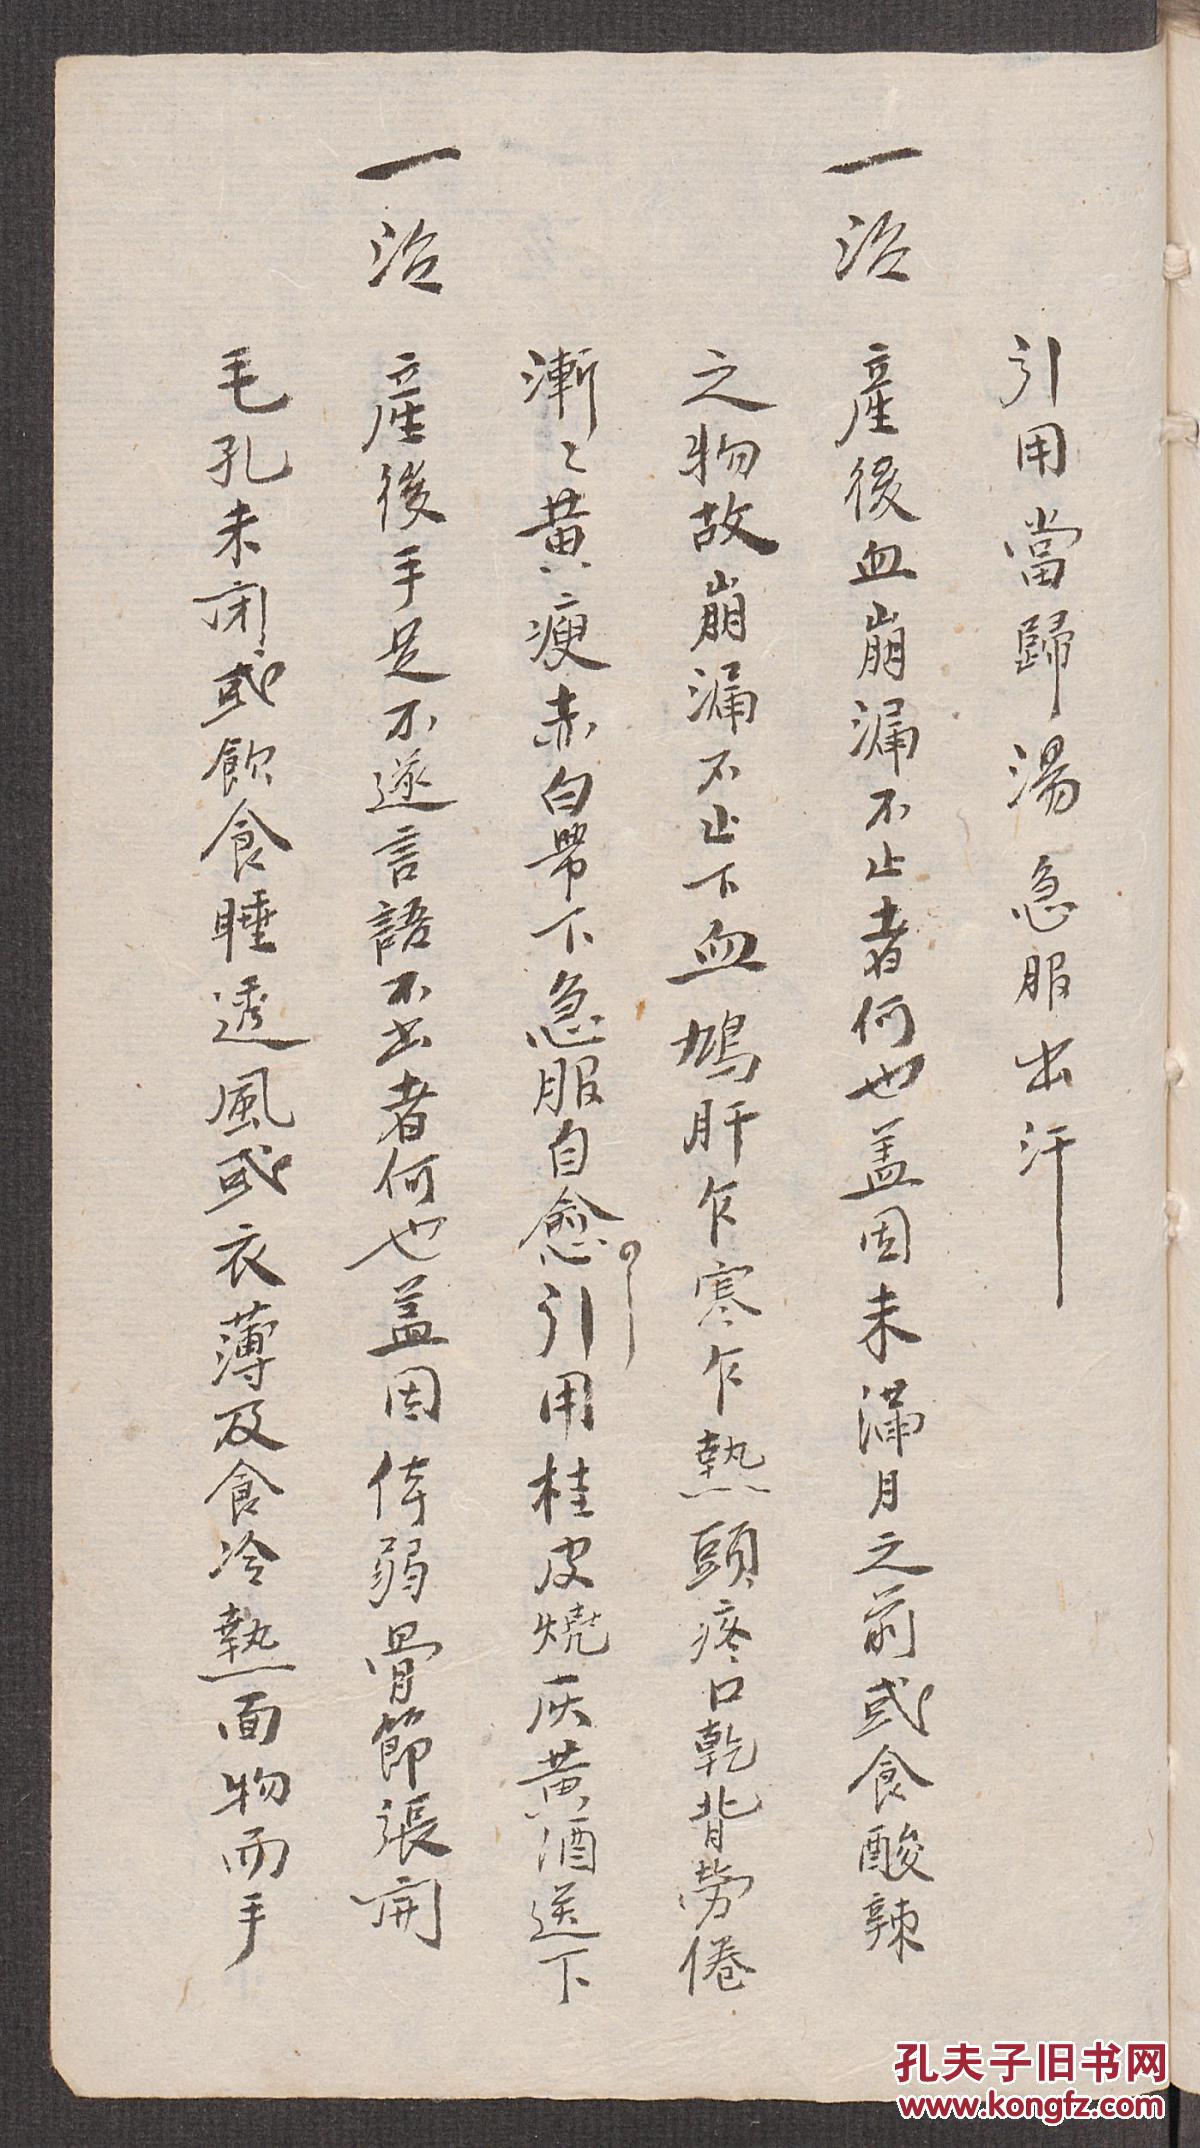 引用當歸湯急服出汗
一治 產後血崩漏不止者何也盖因未滿月之前或食酸辣
之物故崩漏不止下血鳩肝乍寒乍熱頭疼口乾背勞倦
漸〻黃瘦赤白帶下急服自愈引用桂皮燒灰黃酒送下
一治 產後手足不遂言語不出者何也盖因体弱骨節張開
毛孔未閉或飲食睡透風或衣薄及食冷熱面物而手
孔夫子旧书网
www.kongfz.com